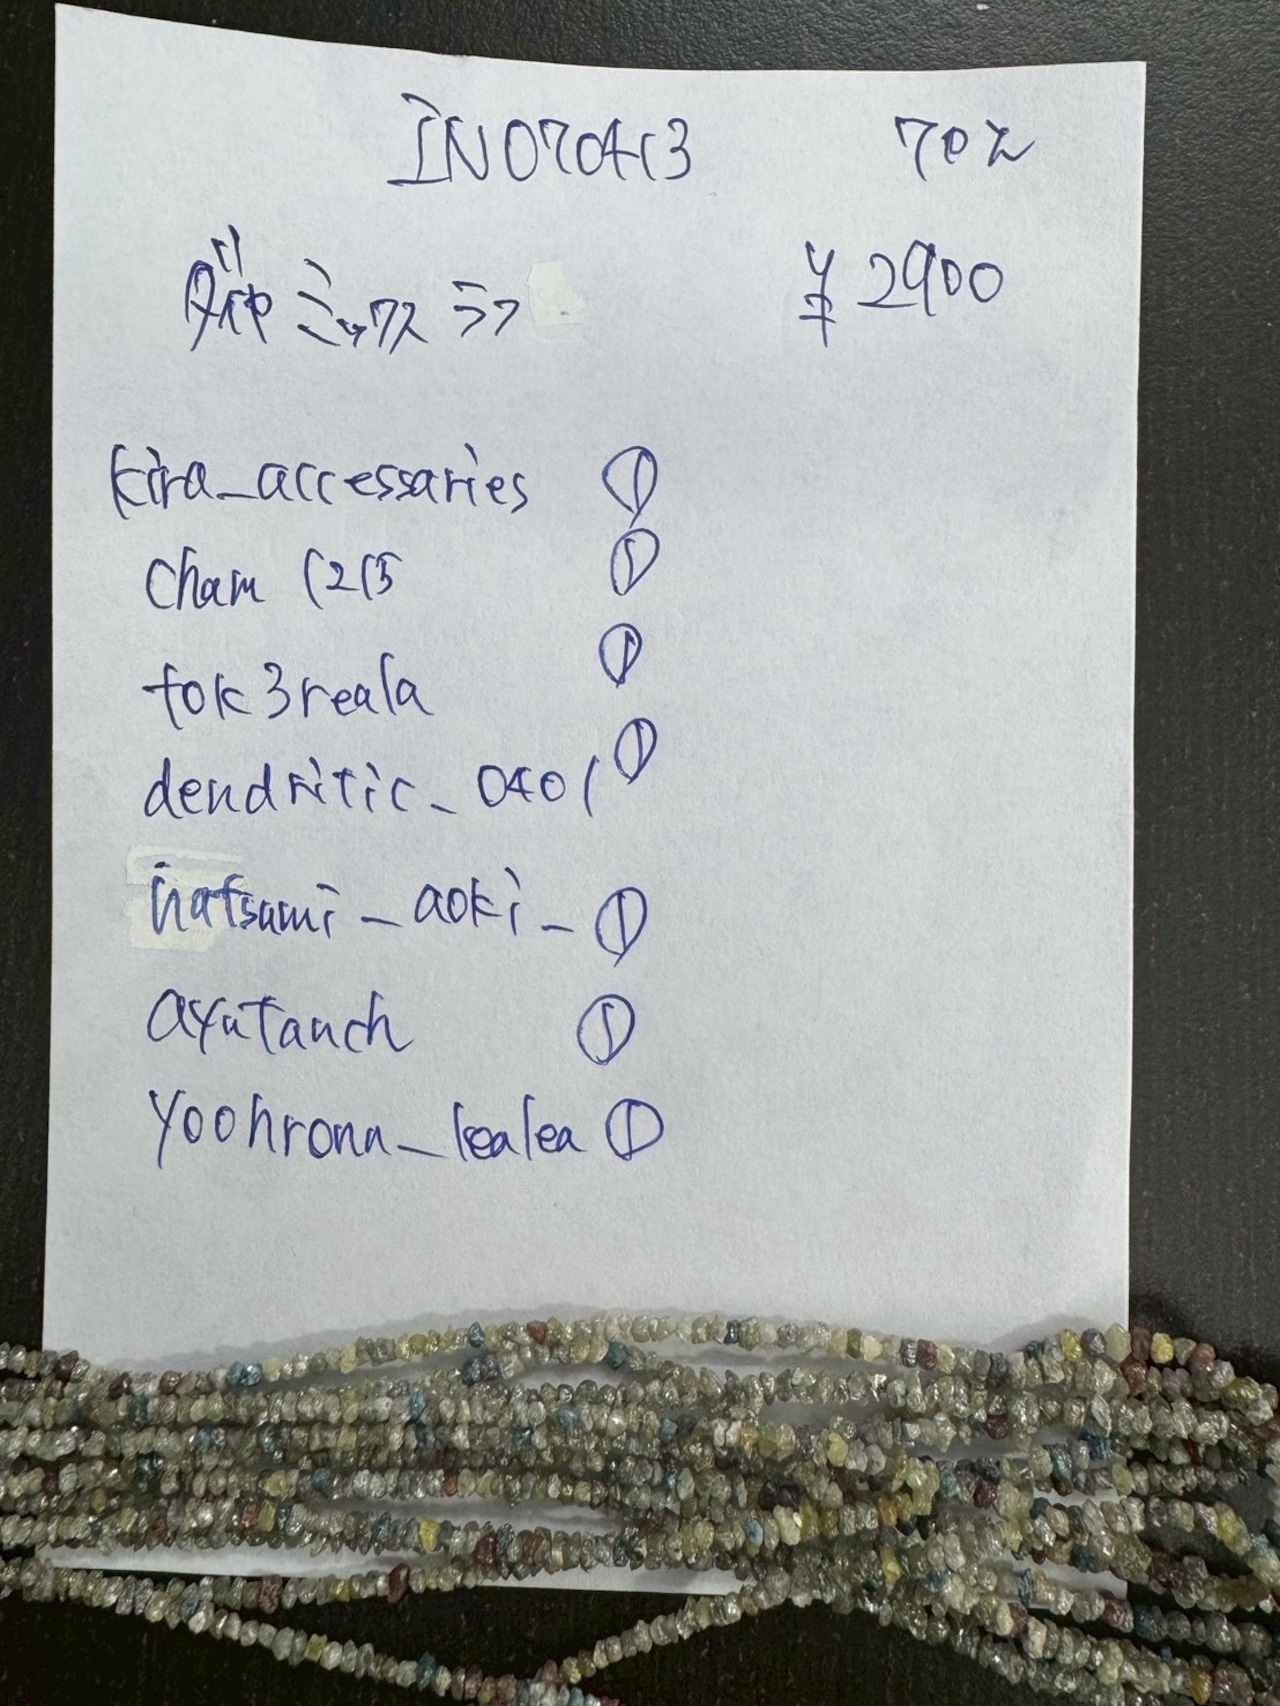 INO70413 70%
ダイヤミックスラフ ¥2900
kira_accessaries ①
cham 1215 ①
tok3reala ①
dendritic_0401 ①
natsumi_aoki_ ①
ayutanch ①
yoohrona_lealea ①